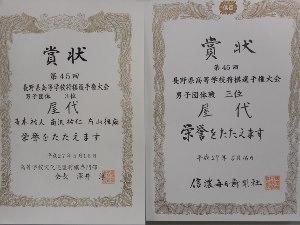 賞状
第45回
長野県高等学校将棋選手権大会
男子団体 三位
屋代
栄誉をたたえます
平成27年5月16日
高等学校文化連盟将棋専門部
会長 深井
賞状
第45回
長野県高等学校将棋選手権大会
男子団体戦 三位
屋代
栄誉をたたえます
平成27年5月16日
信濃毎日新聞社